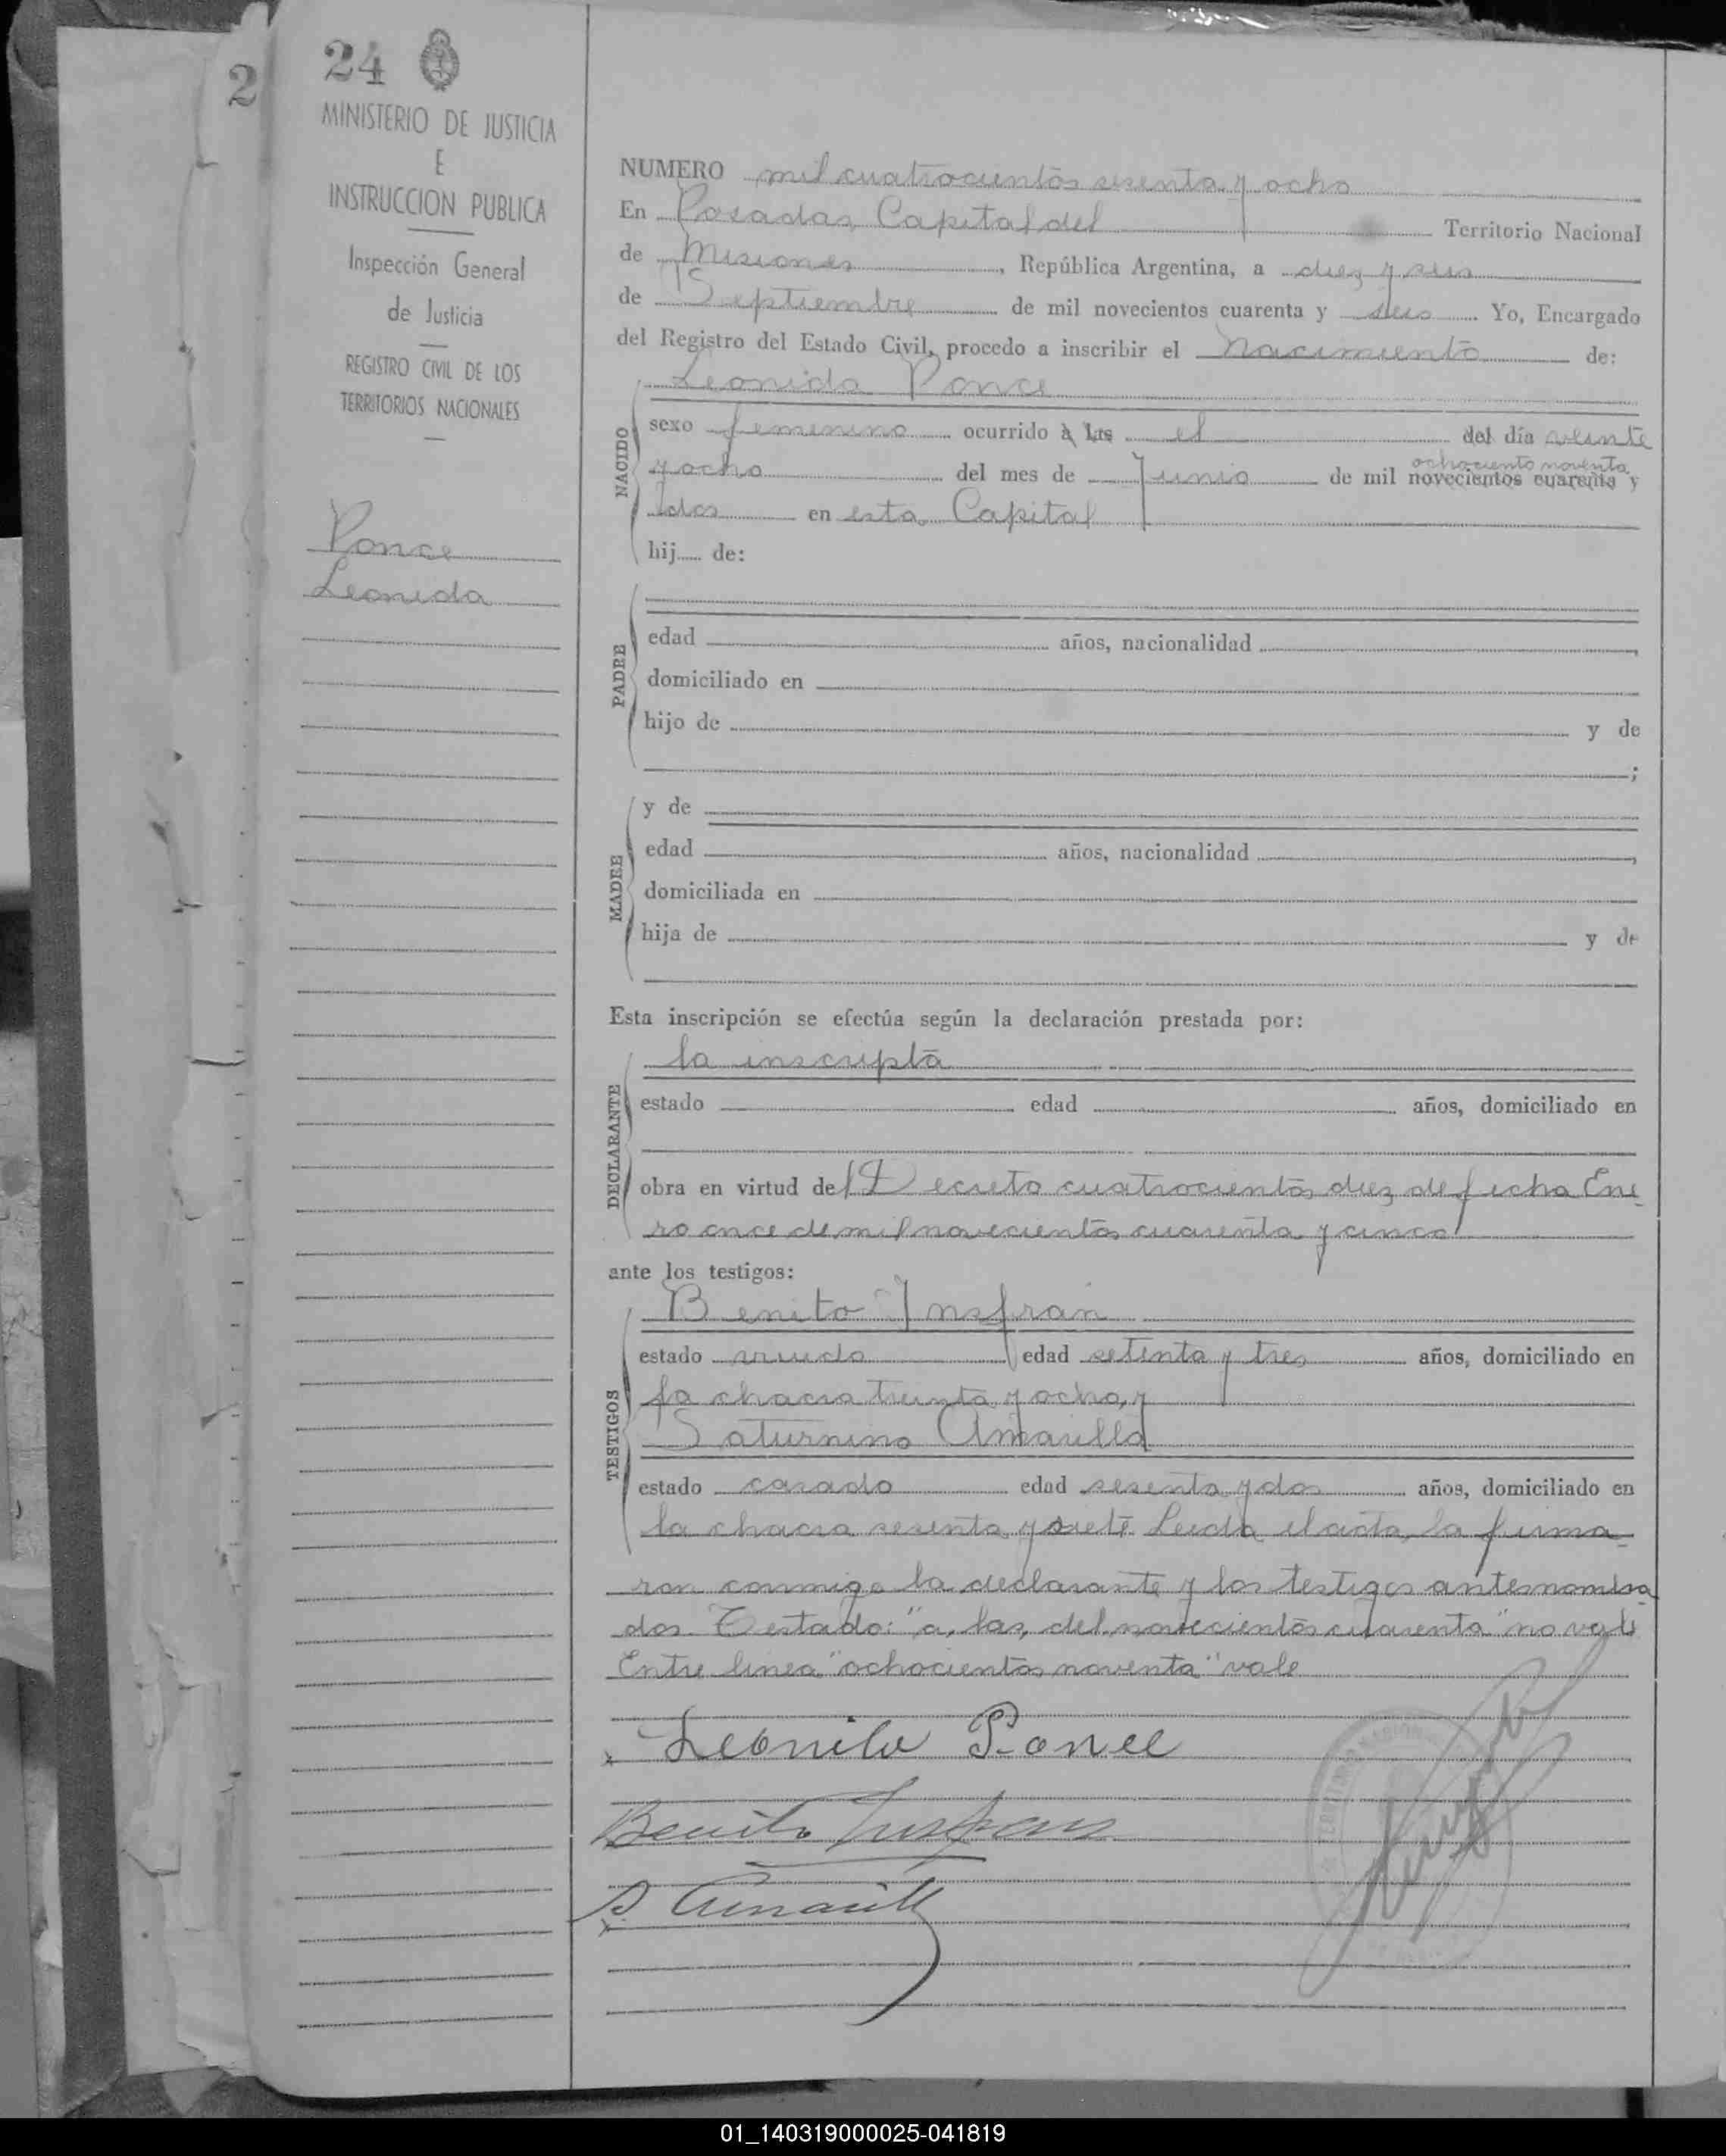 24
2
MINISTERIO DE JUSTICIA
E
INSTRUCCION PUBLICA
Inspección General
de Justicia
REGISTRO CIVIL DE LOS
TERRITORIOS NACIONALES
Ponce
Leonida
NUMERO mil cuatrocientos sesenta y ocho
En Posadas, Capital del Territorio Nacional
de Misiones, República Argentina, a diez y seis
de Septiembre de mil novecientos cuarenta y seis Yo, Encargado
del Registro del Estado Civil, procedo a inscribir el Nacimiento de:
NACIDO
Leonida Ponce
sexo femenino ocurrido a las el del día veinte
ochociento noventa
y ocho del mes de Junio de mil novecientos cuarenta y
dos en esta Capital
hij de:
PADRE
edad años, nacionalidad ,
domiciliado en
hijo de y de
;
MADRE
y de
edad años, nacionalidad ,
domiciliada en
hija de y de
Esta inscripción se efectúa según la declaración prestada por:
DECLARANTE
la inscripta
estado edad años, domiciliado en
obra en virtud del Decreto cuatrocientos diez de fecha Ene
ro once de mil novecientos cuarenta y cinco
ante los testigos:
TESTIGOS
Benito Insfran
estado viudo edad setenta y tres años, domiciliado en
la chacra treinta y ocho, y
Saturnino Amarilla
estado casado edad sesenta y dos años, domiciliado en
la chacra sesenta y siete Leida el acta, la firma
ron conmigo la declarante y los testigos antesnombra
dos. Testado: "a, las, del, novecientos cuarenta" no vale
Entre linea "ochocientos noventa" vale
Leonida Ponce
Benito Insfran
S. Amarilla
01_140319000025-041819